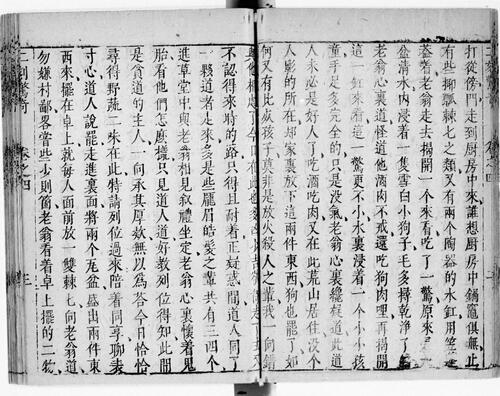 打從傍門走到厨房中來誰想厨房中鍋竈俱無止
有些椰瓢棘匕之類又有兩个陶器的水缸用笠蓬
葢着老翁走去揭開一个來看吃了一驚原來是一
盆清水內浸着一隻雪白小狗子毛多撏乾淨了的
老翁心裏道怪道他酒肉不戒還吃狗肉哩再揭開
這一缸來看這一驚更不小水裏浸着一个小小孩
童手足多完全的只是沒氣老翁心裏纔疑道此道
人未必是好人了吃酒吃肉又在此荒山居住沒个
人影的所在却家裏放下這兩件東西狗也罷了如
何又有此死孩子莫非是放火殺人之輩我一向錯
與他相處了今日在此也多凶少吉欲待走了去又
不認得來時的路只得且耐着正疑惑間道人同了
一夥道者走來多是些龐眉皓髪之輩共有三四个
進草堂中與老翁相見叙禮坐定老翁心裏懷着鬼
胎看他們怎麼樣只見道人道好教列位得知此間
是貧道的主人一向承其厚款無以爲荅今日恰恰
尋得野蔬二味在此特請列位過來陪着同享聊表
寸心道人說罷走進裏面將兩个瓦盆盛出兩件東
西來擺在卓上就每人面前放一雙棘匕向老翁道
勿嫌村鄙畧嘗些少則箇老翁看着卓上擺的二物
二刻驚奇 卷之四